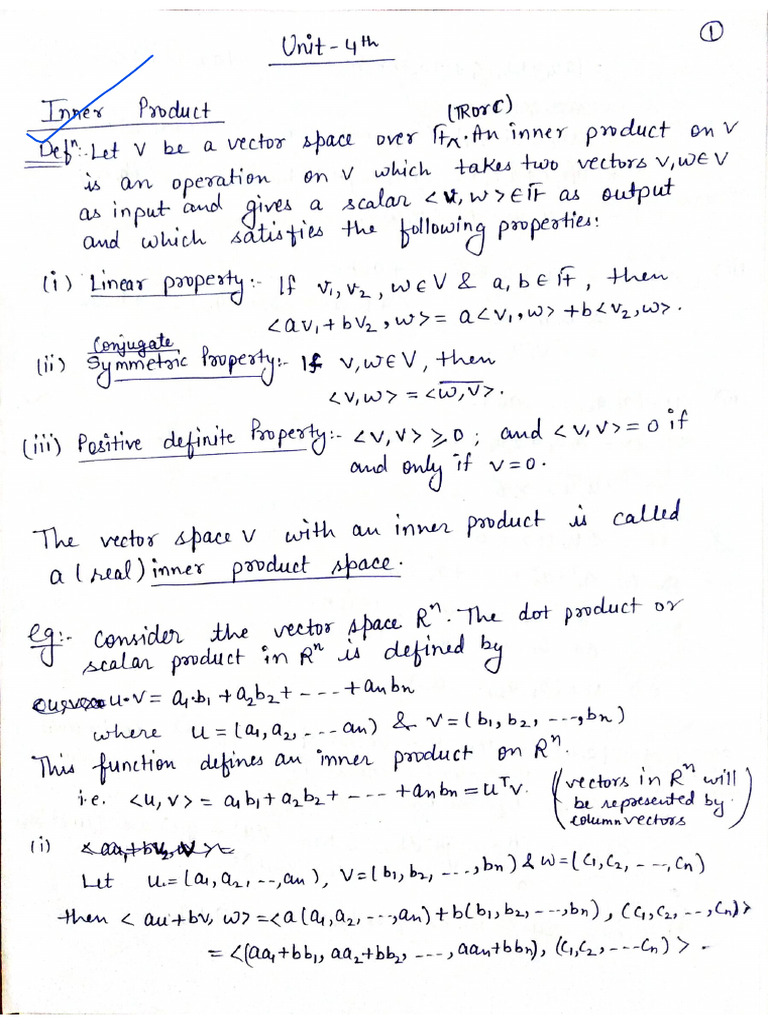 ①
Unit - 4th
Inner Product
(IR or C)
Defn:- Let V be a vector space over F. An inner product on V
is an operation on V which takes two vectors v, w ∈ V
as input and gives a scalar <v, w> ∈ F as output
and which satisfies the following properties:
(i) Linear property:- If v₁, v₂, w ∈ V & a, b ∈ F, then
<av₁ + bv₂, w> = a<v₁, w> + b<v₂, w>.
Conjugate
(ii) Symmetric Property:- If v, w ∈ V, then
<v, w> = <w̅,̅ ̅v̅>.
(iii) Positive definite Property:- <v, v> ≥ 0; and <v, v> = 0 if
and only if v = 0.
The vector space V with an inner product is called
a (real) inner product space.
eg:- Consider the vector space Rⁿ. The dot product or
scalar product in Rⁿ is defined by
u·v = a₁·b₁ + a₂b₂ + - - - - + anbn
where u = (a₁, a₂, - - - an) & v = (b₁, b₂, - - - -, bn)
This function defines an inner product on Rⁿ.
i.e. <u, v> = a₁b₁ + a₂b₂ + - - - - + anbn = uᵀv. (vectors in Rⁿ will
be represented by
column vectors)
(i)
Let u = (a₁, a₂, - - -, an), v = (b₁, b₂, - - - -, bn) & w = (c₁, c₂, - - -, cn)
then <au + bv, w> = <a(a₁, a₂, - - - -, an) + b(b₁, b₂, - - - -, bn), (c₁, c₂, - - -, cn)>
= <(aa₁ + bb₁, aa₂ + bb₂, - - - -, aan + bbn), (c₁, c₂, - - - cn)>.